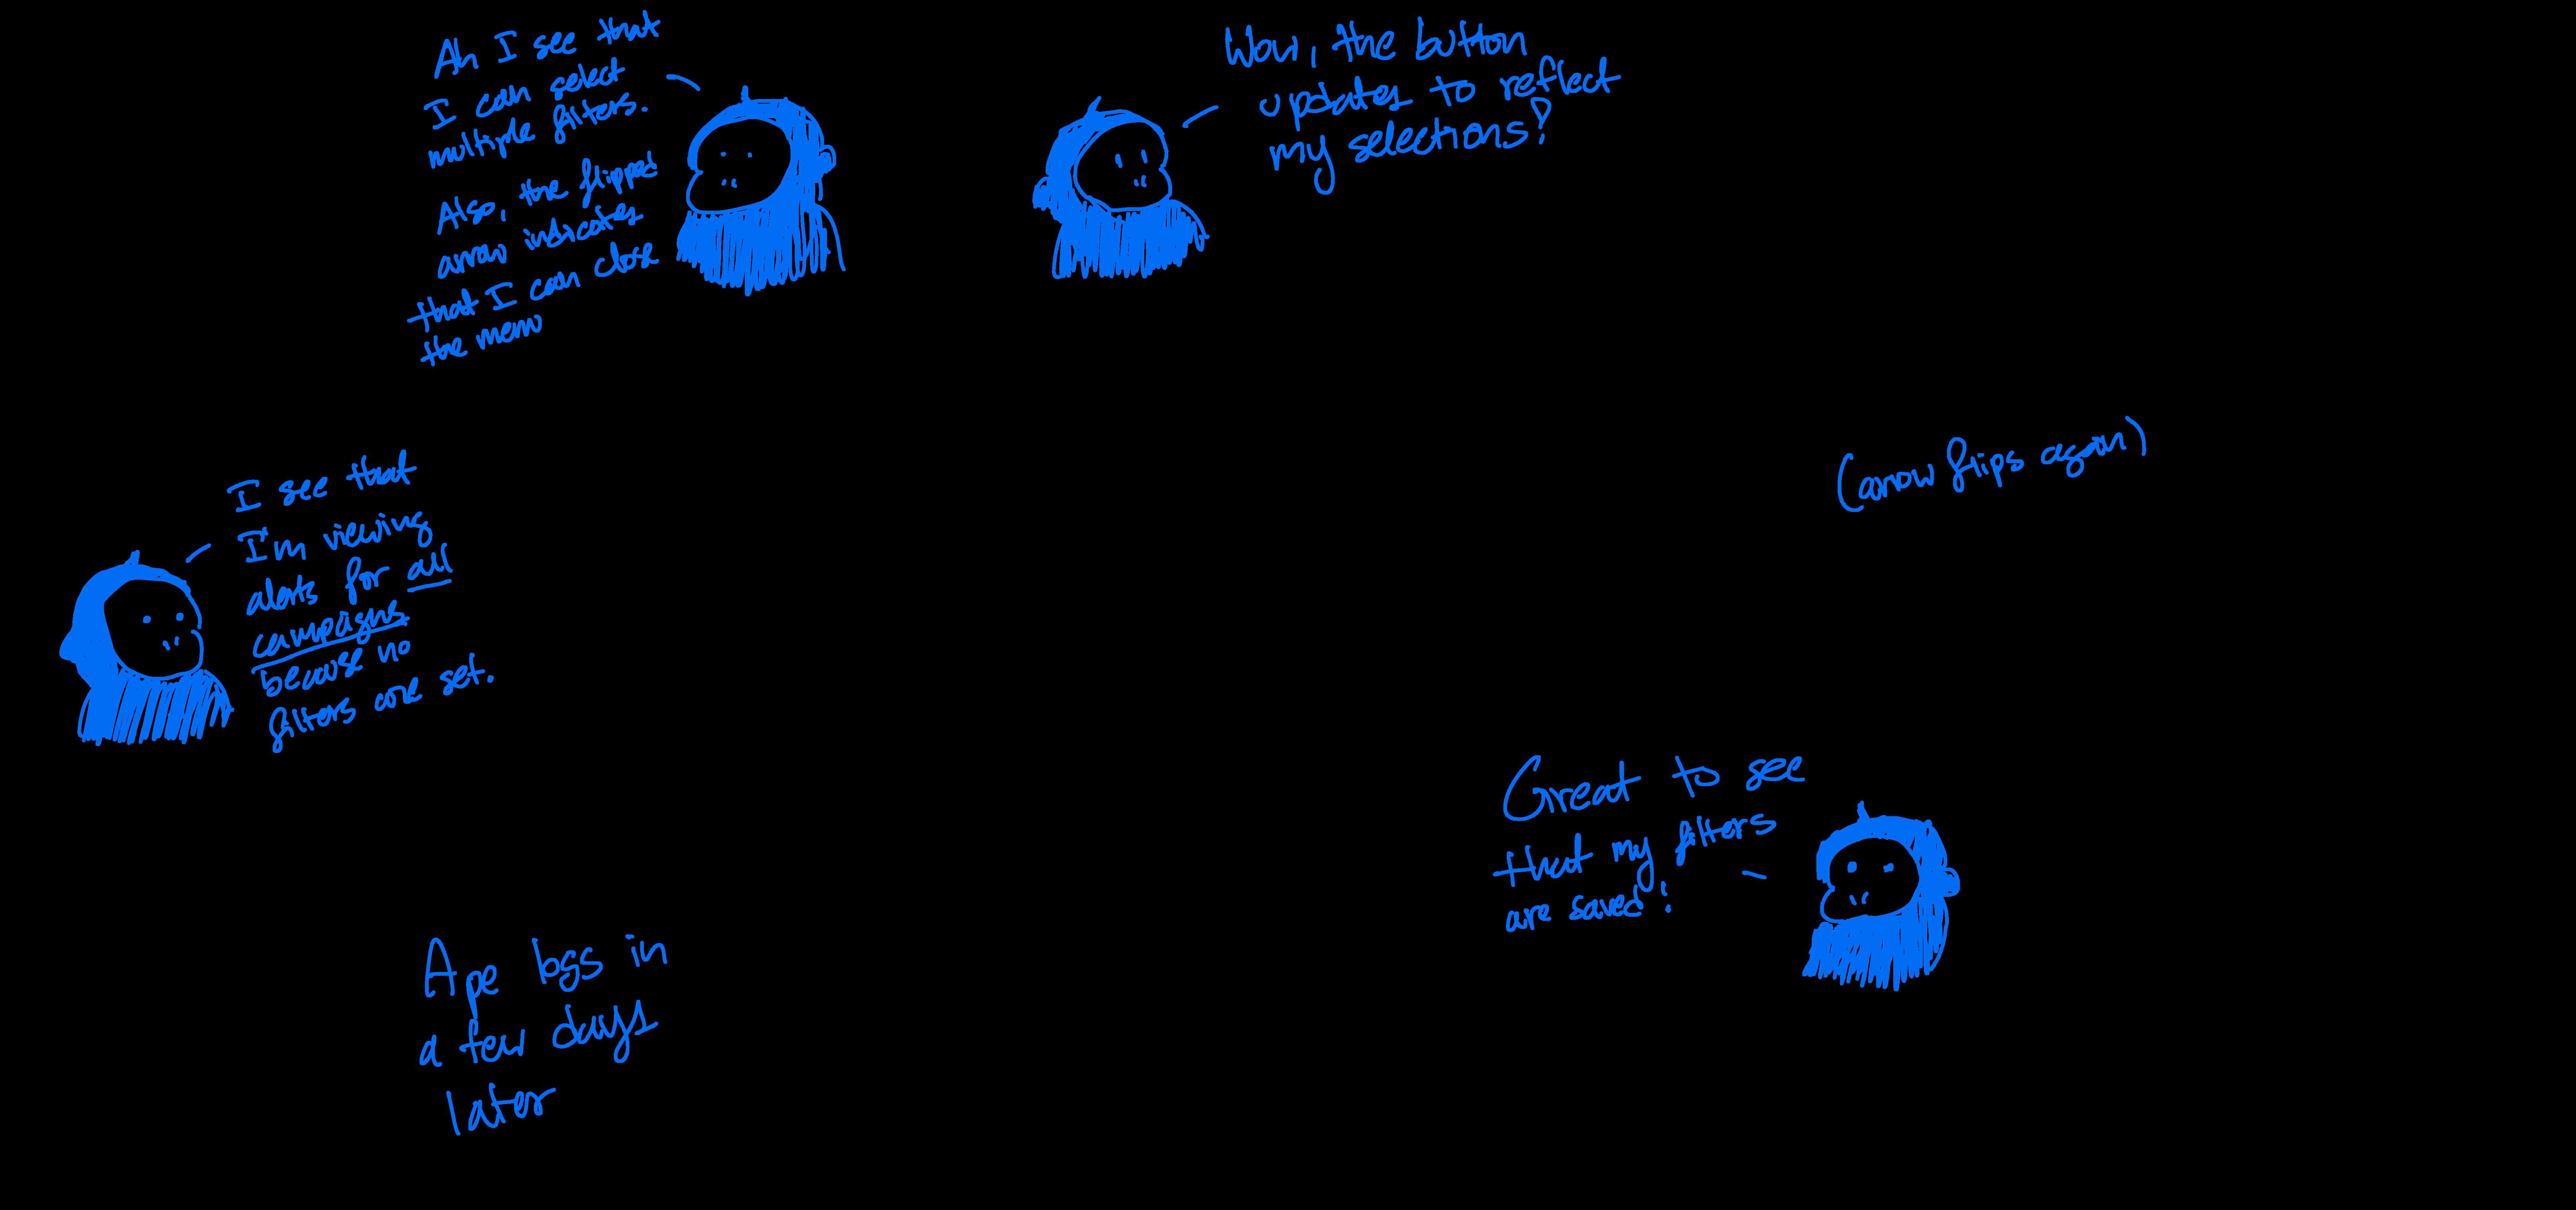 Ah I see that
I can select
multiple filters.
Also, the flipped
arrow indicates
that I can close
the menu
Wow, the button
updates to reflect
my selections!
(arrow flips again)
I see that
I'm viewing
alerts for all
campaigns
because no
filters are set.
Great to see
that my filters
are saved!
Ape logs in
a few days
later